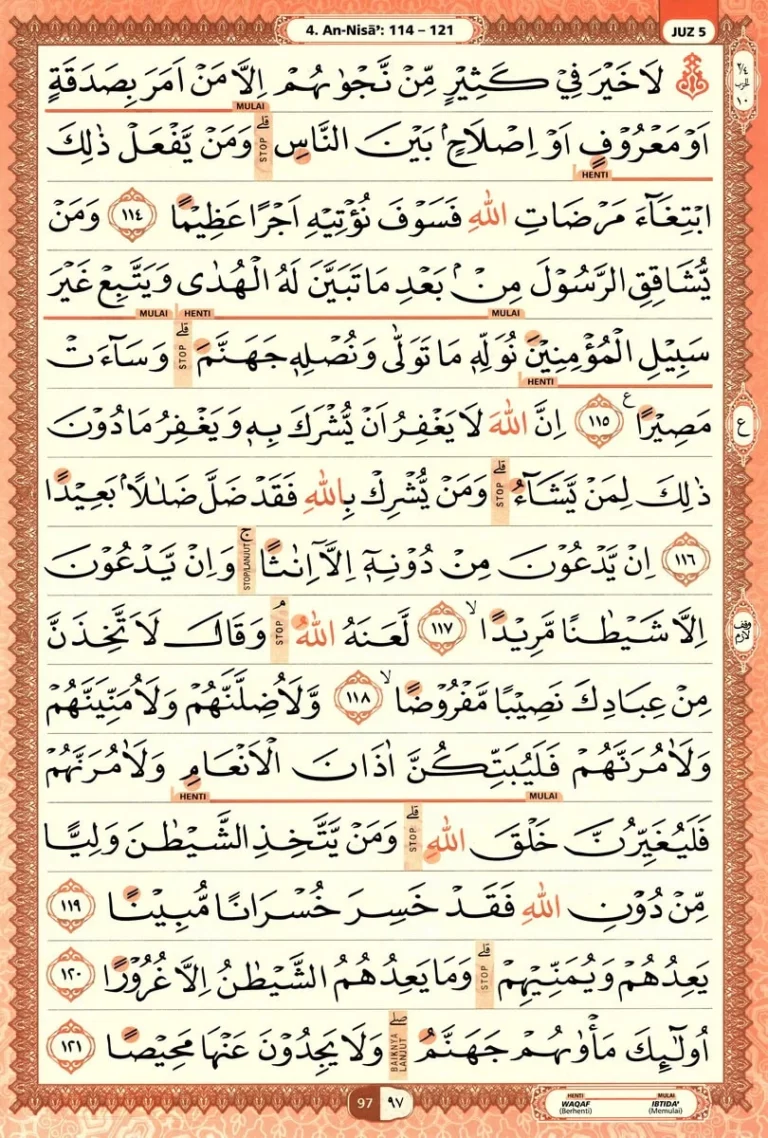 4. An-Nisā': 114 – 121
JUZ 5
لَا خَيْرَ فِيْ كَثِيْرٍ مِّنْ نَّجْوٰىهُمْ اِلَّا مَنْ اَمَرَ بِصَدَقَةٍ
MULAI
اَوْ مَعْرُوْفٍ اَوْ اِصْلَاحٍۢ بَيْنَ النَّاسِۗ وَمَنْ يَّفْعَلْ ذٰلِكَ
STOP
HENTI
ابْتِغَاۤءَ مَرْضَاتِ اللّٰهِ فَسَوْفَ نُؤْتِيْهِ اَجْرًا عَظِيْمًا ١١٤ وَمَنْ
يُّشَاقِقِ الرَّسُوْلَ مِنْۢ بَعْدِ مَا تَبَيَّنَ لَهُ الْهُدٰى وَيَتَّبِعْ غَيْرَ
MULAI HENTI MULAI
سَبِيْلِ الْمُؤْمِنِيْنَ نُوَلِّهٖ مَا تَوَلّٰى وَنُصْلِهٖ جَهَنَّمَۗ وَسَاۤءَتْ
STOP
HENTI
مَصِيْرًا ࣖ ١١٥ اِنَّ اللّٰهَ لَا يَغْفِرُ اَنْ يُّشْرَكَ بِهٖ وَيَغْفِرُ مَا دُوْنَ
ع
ذٰلِكَ لِمَنْ يَّشَاۤءُۗ وَمَنْ يُّشْرِكْ بِاللّٰهِ فَقَدْ ضَلَّ ضَلٰلًاۢ بَعِيْدًا
STOP
١١٦ اِنْ يَّدْعُوْنَ مِنْ دُوْنِهٖٓ اِلَّآ اِنٰثًاۚ وَاِنْ يَّدْعُوْنَ
STOP/LANJUT
اِلَّا شَيْطٰنًا مَّرِيْدًاۙ ١١٧ لَّعَنَهُ اللّٰهُۘ وَقَالَ لَاَتَّخِذَنَّ
STOP
مِنْ عِبَادِكَ نَصِيْبًا مَّفْرُوْضًاۙ ١١٨ وَّلَاُضِلَّنَّهُمْ وَلَاُمَنِّيَنَّهُمْ
وَلَاٰمُرَنَّهُمْ فَلَيُبَتِّكُنَّ اٰذَانَ الْاَنْعَامِ وَلَاٰمُرَنَّهُمْ
HENTI MULAI
فَلَيُغَيِّرُنَّ خَلْقَ اللّٰهِۗ وَمَنْ يَّتَّخِذِ الشَّيْطٰنَ وَلِيًّا
STOP
مِّنْ دُوْنِ اللّٰهِ فَقَدْ خَسِرَ خُسْرَانًا مُّبِيْنًا ١١٩
يَعِدُهُمْ وَيُمَنِّيْهِمْۗ وَمَا يَعِدُهُمُ الشَّيْطٰنُ اِلَّا غُرُوْرًا ١٢٠
STOP
اُولٰۤىِٕكَ مَأْوٰىهُمْ جَهَنَّمُۖ وَلَا يَجِدُوْنَ عَنْهَا مَحِيْصًا ١٢١
BAIKNYA LANJUT
97 ٩٧
HENTI MULAI
WAQAF IBTIDA'
(Berhenti) (Memulai)